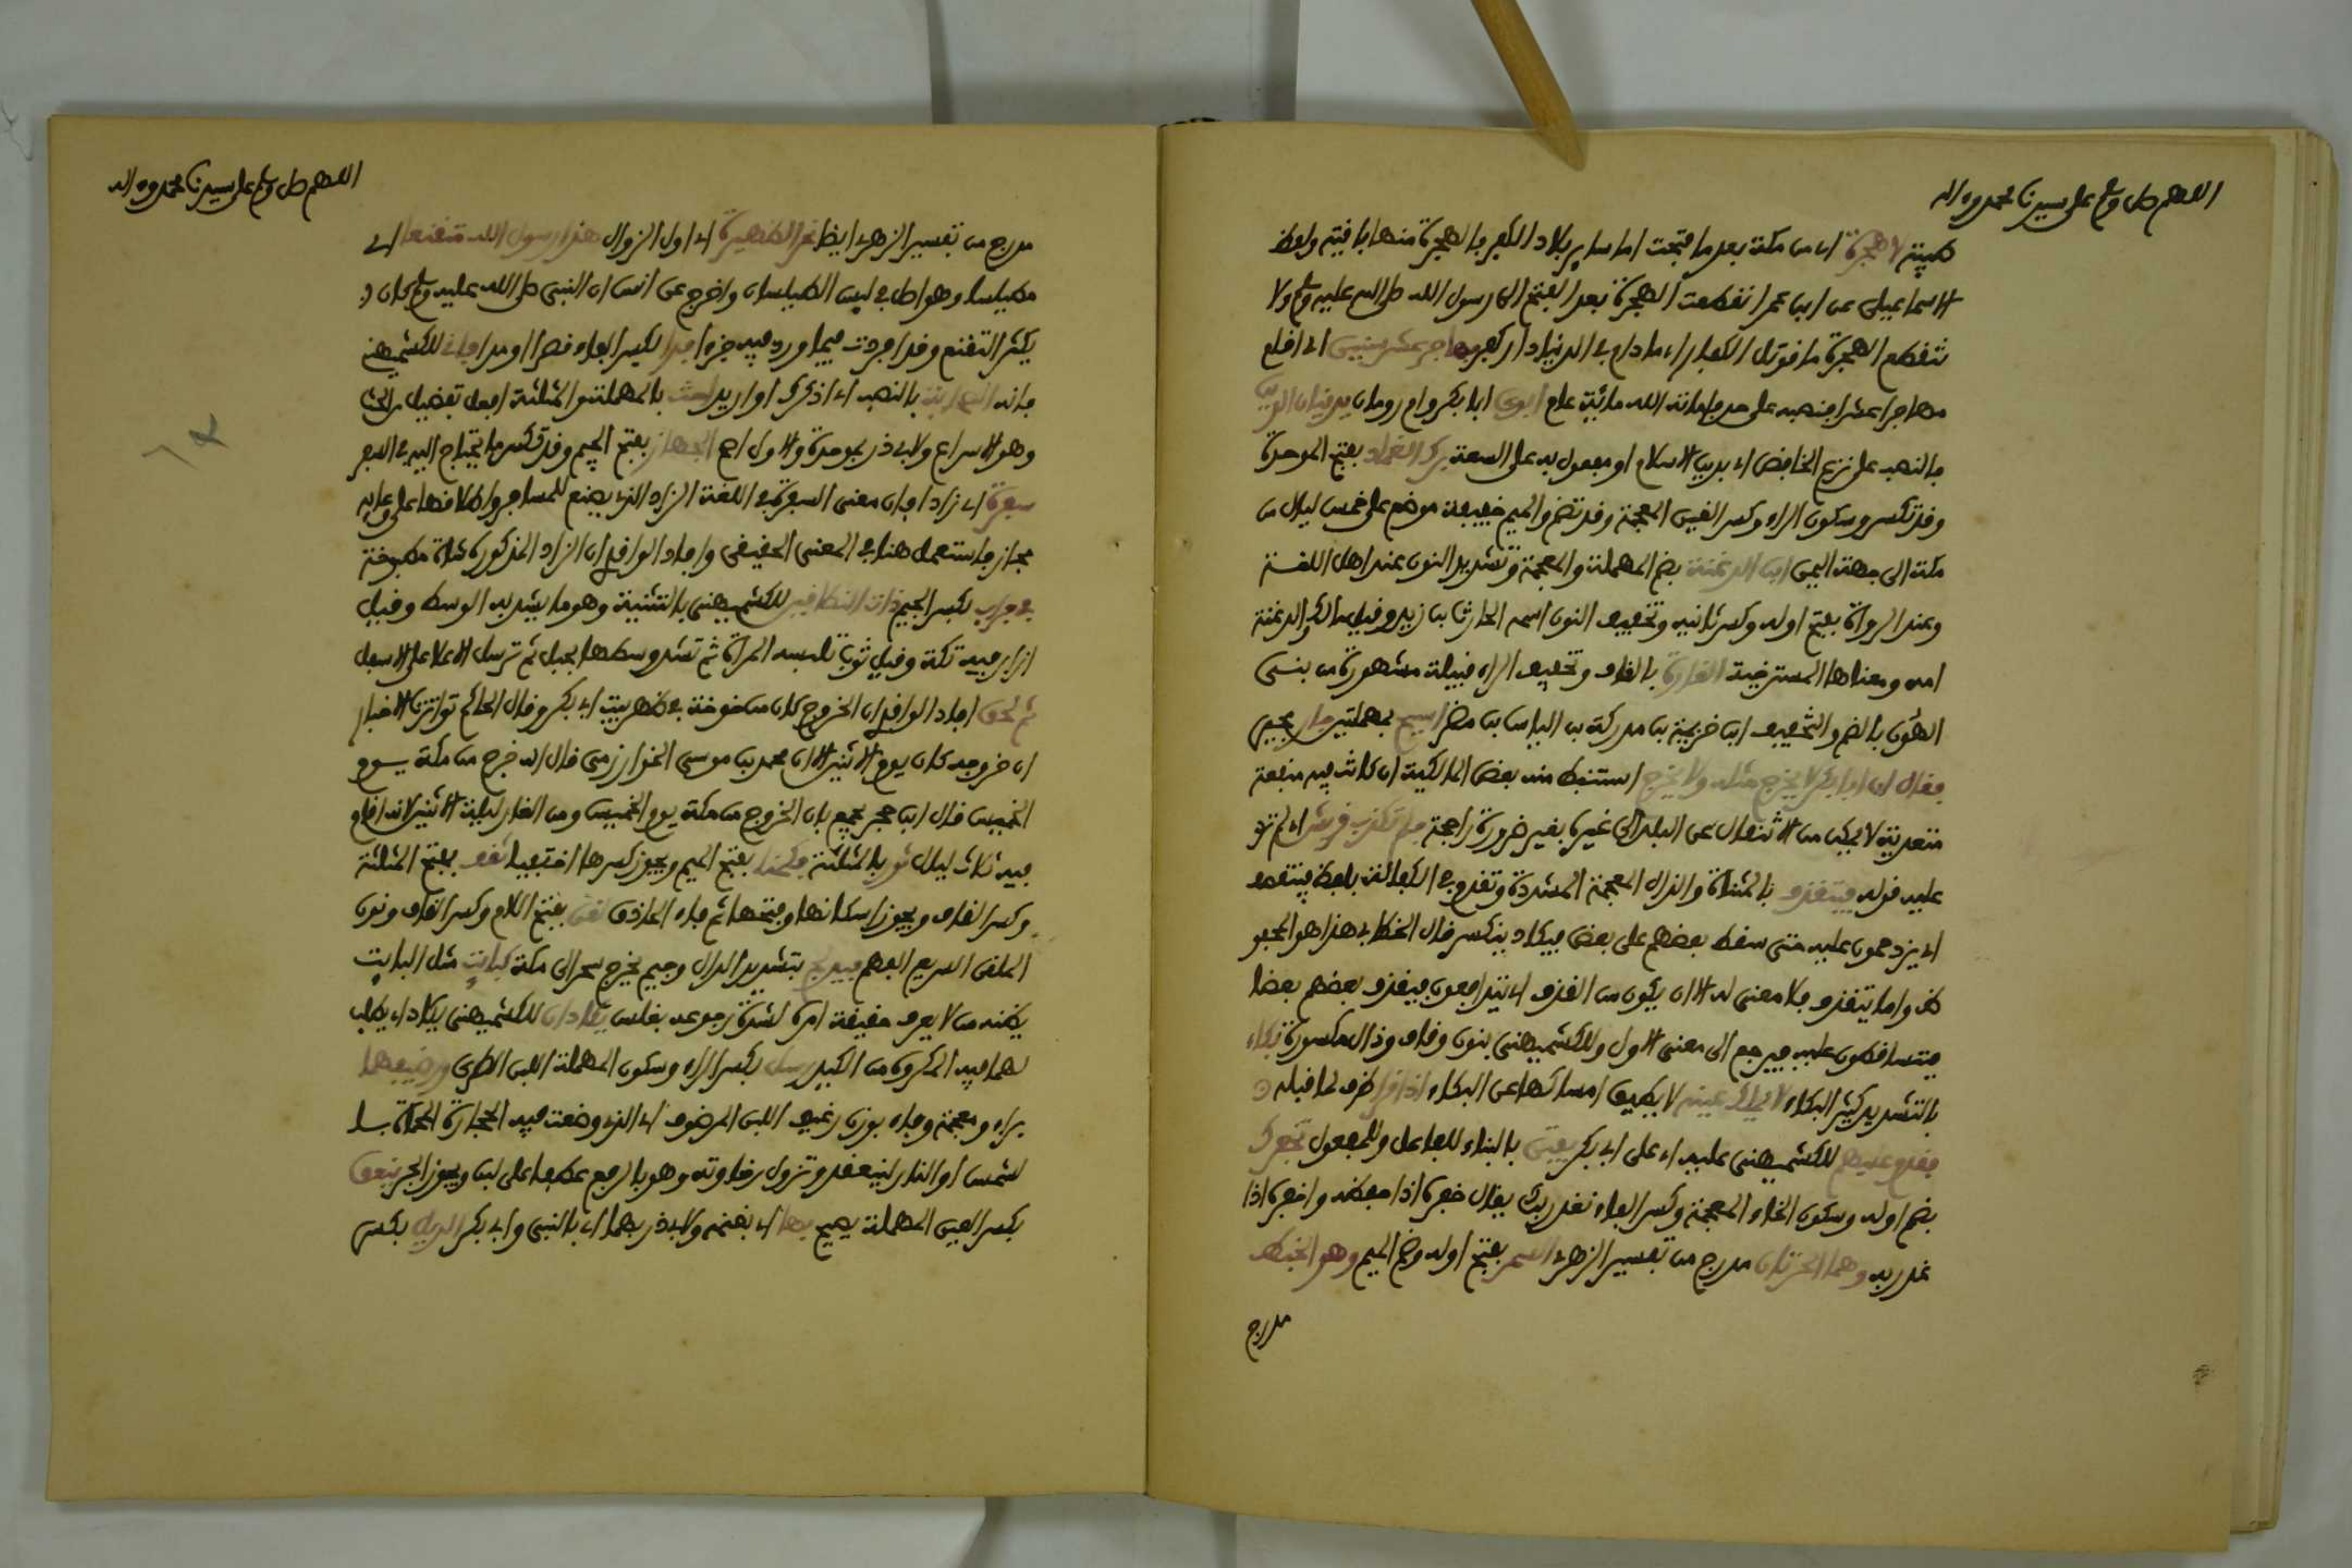 اللهم صل وسلم على سيدنا محمد وءاله
طيبة لا هجرة اي من مكة بعد ما فتحت اما ساير بلاد الكفر فالهجرة منها باقية ولفظ
الاسماعيلي عن ابن عمر انقطعت الهجرة بعد الفتح الى رسول الله صلى الله عليه وسلم ولا
تنقطع الهجرة ما قوتل الكفار اي ما دام في الدنيا دار كفر مهاجر عشر سنين اي اقام
مهاجرا عشرا فنصبه على حد فاماته الله مائة عام ابوي ابا بكر وام رومان يدينان الدين
بالنصب على نزع الخافض اي بدين الاسلام او مفعول به على السعة برك الغماد بفتح الموحدة
وقد تكسر وسكون الراء وكسر الغين المعجمة وقد تضم والميم خفيفة موضع على خمس ليال من
مكة الى جهة اليمن ابن الدغنة بضم المهملة والمعجمة وتشديد النون عند اهل اللغة
وعند الرواة بفتح اوله وكسر ثانيه وتخفيف النون اسمه الحارث بن زيد وقيل مالك والدغنة
امه ومعناها المسترخية القارة بالقاف وتخفيف الراء قبيلة مشهورة من بني
الهون بالضم والتخفيف ابن خزيمة بن مدركة بن الياس بن مضر اسيح بمهملتين جار مجير
فقال ان ابا بكر لا يخرج مثله ولا يخرج استنبط منه بعض المالكية ان كانت فيه منفعة
متعدية لا يمكن من الانتقال عن البلد الى غيره بغير ضرورة راجحة فلم تكذب قريش اي لم ترد
عليه قوله فيتقذف بالمثناة والذال المعجمة المشددة وتقدم في الكفالة بلفظ فيتقصف
اي يزدحمون عليه حتى سقط بعضهم على بعض فيكاد ينكسر قال الخطابي هذا هو المحفو
ظ واما يتقذف فلا معنى له الا ان يكون من القذف اي يتدافعون فيقذف بعضهم بعضا
فيتساقطون عليه فيرجع الى معنى الاول وللكشميهني بنون وقاف وذال مكسورة بكاء
بالتشديد كثير البكاء لا يملك عينيه لا يطيق امساكها عن البكاء اذا قرا ظرف لما قبله
فقدم عليهم للكشميهني عليه اي على ابي بكر يفتن بالبناء للفاعل وللمفعول نخفرك
بضم اوله وسكون الخاء المعجمة وكسر الفاء نغدر بك يقال خفره اذا حفظه واخفره اذا
غدر به وهما الحرتان مدرج من تفسير الزهري السمر بفتح اوله وضم الميم وهو الخبط
مدرج
اللهم صل وسلم على سيدنا محمد وءاله
مدرج من تفسير الزهري ايضا نحر الظهيرة اي اول الزوال هذا رسول الله متقنعا اي
مطيلسا وهو اصل في لبس الطيلسان واخرج عن انس ان النبي صلى الله عليه وسلم كان
يكثر التقنع وقد افردت فيما ورد فيه جزءا فدا لكسر الفاء قصرا او مدا فاني للكشميهني
فانه الصحابة بالنصب اي اذكرك او اريد احث بالمهملة والمثلثة افعل تفضيل من الحث
وهو الاسراع ولابي ذر بموحدة والاول اصح الجهاز بفتح الجيم وقد تكسر ما يحتاج اليه في السفر
سفرة اي زادا فان معنى السفرة في اللغة الزاد الذي يصنع للمسافر واطلاقها على وعايه
مجاز فاستعمل هنا في المعنى الحقيقي وافاد الواقدي ان الزاد المذكور كان شاة مطبوخة
في جراب بكسر الجيم ذات النطاقين للكشميهني بالتثنية وهو ما يشد به الوسط وقيل
ازار فيه تكة وقيل ثوب تلبسه المراة ثم تشد وسطها بحبل ثم ترسل الاعلا على الاسفل
ثم لحق افاد الواقدي ان الخروج كان من خوخة في ظهر بيت ابي بكر وقال الحاكم تواترت الاخبار
ان خروجه كان يوم الاثنين الا ان محمد بن موسى الخوارزمي قال انه خرج من مكة يوم
الخميس قال ابن حجر يجمع بان الخروج من مكة يوم الخميس ومن الغار ليلة الاثنين لانه اقام
فيه ثلاث ليال ثور بالمثلثة فكمنا بفتح الميم ويجوز كسرها اختفيا ثقف بفتح المثلثة
وكسر القاف ويجوز اسكانها وفتحها ثم فاء الحاذق لقن بفتح اللام وكسر القاف ونون
الملقى السريع الفهم فيدلج بتشديد الدال وجيم يخرج سحرا الى مكة كبايت مثل البايت
يظنه من لا يعرف حقيقة امره لشدة رجوعه بغلس يكادان للكشميهني يكاد اي يطلب
لهما فيه المكروه من الكيد رسل بكسر الراء وسكون المهملة اللبن الطري ورضيفهما
براء ومعجمة وفاء بوزن رغيف اللبن المرضوف اي الذي وضعت فيه الحجارة المحماة بـا
لشمس او النار لينعقد وتزول رخاوته وهو بالرفع عطفا على لبن ويجوز الجر ينعق
بكسر العين المهملة يصيح بها اي بغنمه ولابي ذر بهما اي بالنبي وابي بكر الديل بكسر